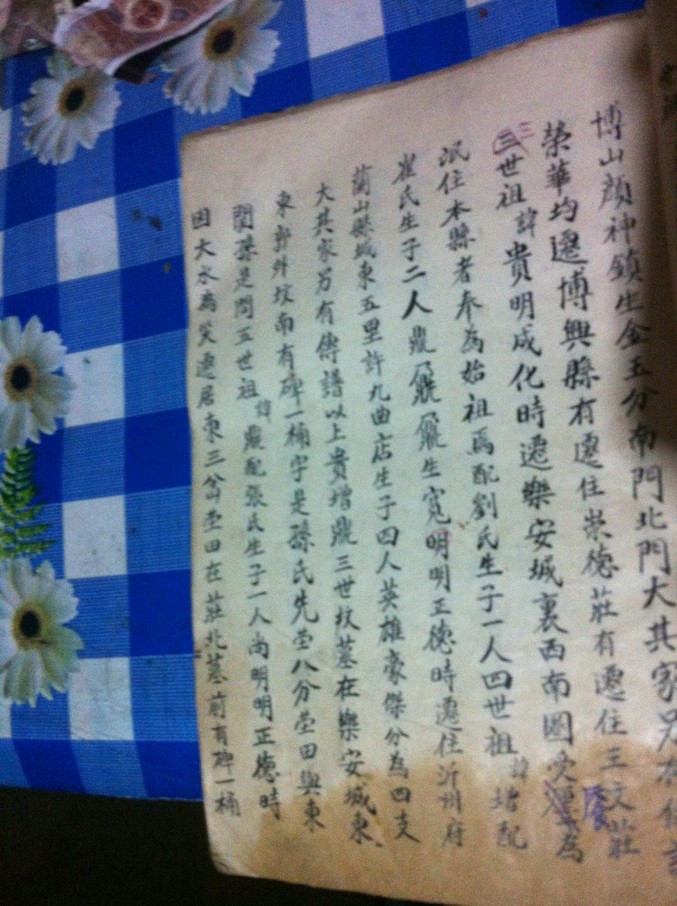 博山顏神鎮生金玉分南門北門大其家另有傳譜
榮華均遷博興縣有遷住崇德莊有遷住三文莊
三世祖諱貴明成化時遷樂安城裏西南圈受廛為
氓住本縣者奉為始祖焉配劉氏生子一人四世祖諱增配
崔氏生子二人鼎鼐鼐生寬明明正德時遷住沂州府
蘭山縣城東五里許九曲店生子四人英雄豪傑分為四支
大其家另有傳譜以上貴增鼎三世坟墓在樂安城東
東軒外坟南有碑一桶字是孫氏先塋八分塋田與東
閆孫是問五世祖諱鼎配張氏生子一人尚明明正德時
因大水為災遷居東三岔塋田在莊北墓前有碑一桶